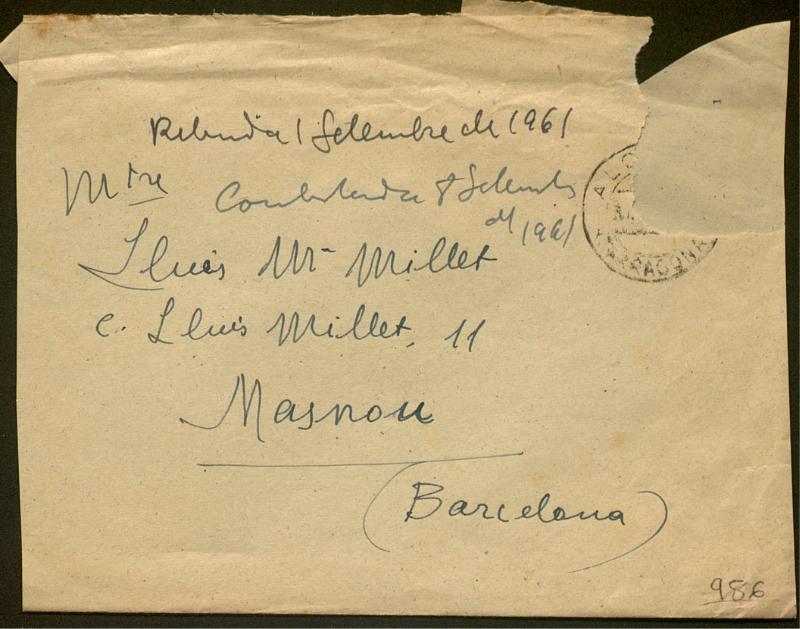 Rebuda 1 Setembre de 1961
Mtre
Contestada 8 Setembre
de 1961
Lluís Mª Millet
c. Lluís Millet, 11
Masnou
(Barcelona)
TARRAGONA
986